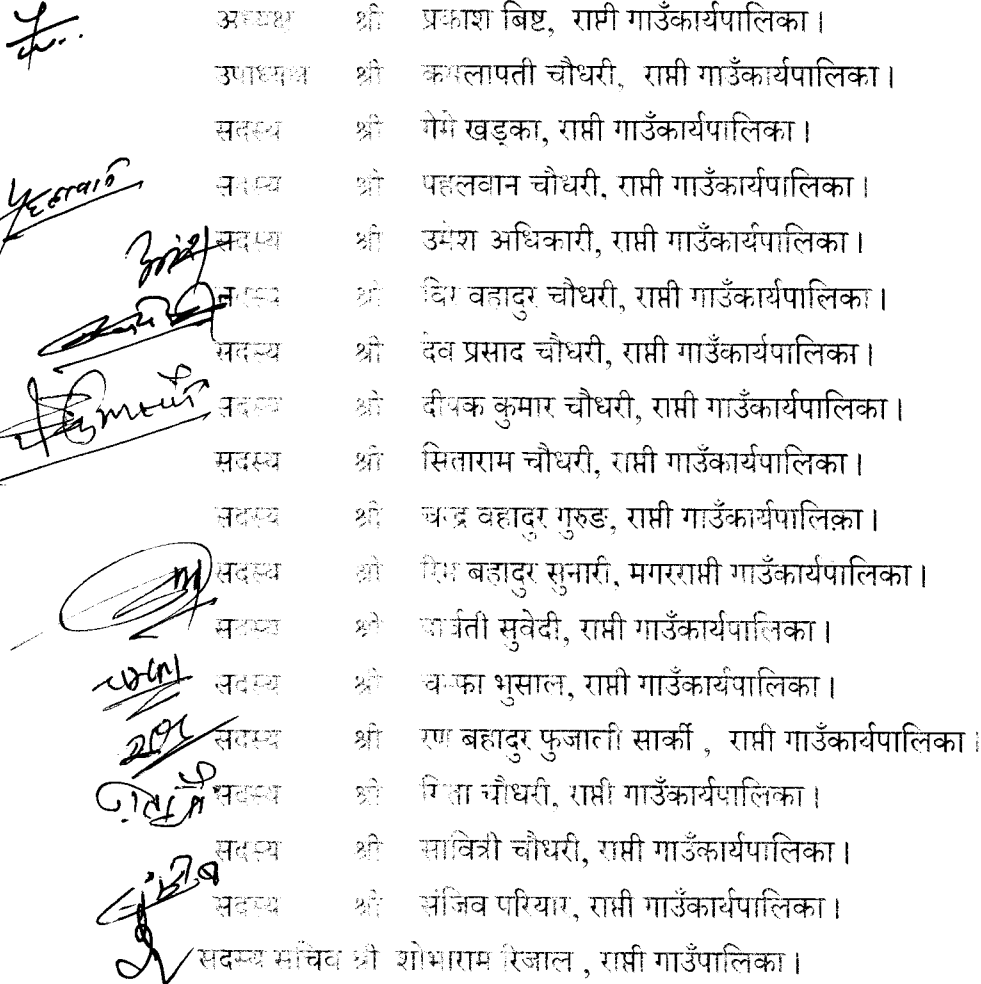 अध्यक्ष श्री प्रकाश बिष्ट, राप्ती गाउँकार्यपालिका ।
उपाध्यक्ष श्री कमलापती चौधरी, राप्ती गाउँकार्यपालिका ।
सदस्य श्री गेमे खड्का, राप्ती गाउँकार्यपालिका ।
सदस्य श्री पहलवान चौधरी, राप्ती गाउँकार्यपालिका ।
सदस्य श्री उमेश अधिकारी, राप्ती गाउँकार्यपालिका ।
सदस्य श्री विर वहादुर चौधरी, राप्ती गाउँकार्यपालिका ।
सदस्य श्री देव प्रसाद चौधरी, राप्ती गाउँकार्यपालिका ।
सदस्य श्री दीपक कुमार चौधरी, राप्ती गाउँकार्यपालिका ।
सदस्य श्री सिताराम चौधरी, राप्ती गाउँकार्यपालिका ।
सदस्य श्री चन्द्र वहादुर गुरुङ, राप्ती गाउँकार्यपालिका ।
सदस्य श्री बहादुर सुनारी, मगरराप्ती गाउँकार्यपालिका ।
सदस्य श्री पार्वती सुवेदी, राप्ती गाउँकार्यपालिका ।
सदस्य श्री चम्फा भुसाल, राप्ती गाउँकार्यपालिका ।
सदस्य श्री रण बहादुर फुजाती सार्की , राप्ती गाउँकार्यपालिका ।
सदस्य श्री चौधरी, राप्ती गाउँकार्यपालिका ।
सदस्य श्री सावित्री चौधरी, राप्ती गाउँकार्यपालिका ।
सदस्य श्री संजिव परियार, राप्ती गाउँकार्यपालिका ।
सदस्य सचिव श्री शोभाराम रिजाल , राप्ती गाउँपालिका ।